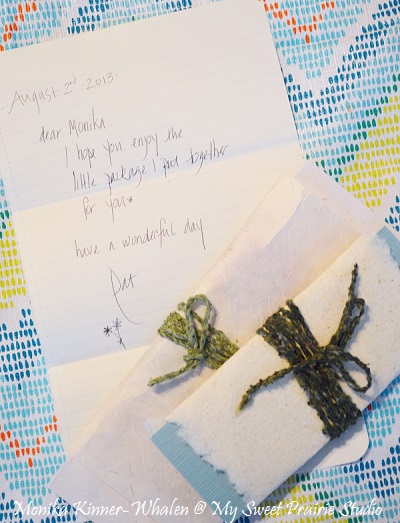 August 2nd 2013.
dear Monika
I hope you enjoy the
little package I put together
for you*
have a wonderful day
Pat
Monika Kinner-Whalen @ My Sweet Prairie Studio